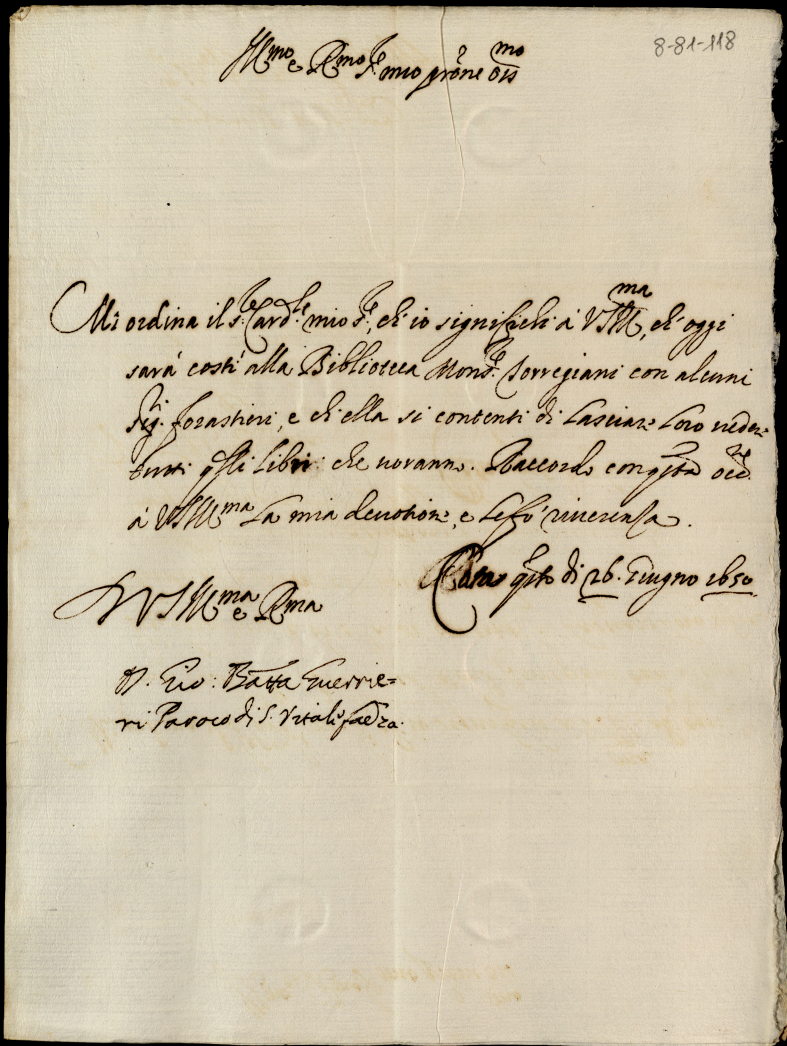 8-81-118
Ill.mo e R.mo S.re mio prône oss.mo
Mi ordina il S.re Card.le mio S.re, ch'io significhi à V S Ill.ma, ch'oggi
sarà costì alla Biblioteca Mons.re Torregiani con alcuni
Sig.ri forastieri, e ch'ella si contenti di lasciare loro vedere
tutti q̃lli libri che voranno. Raccordo con q̃sta occ.ne
à V S Ill.ma la mia devotione, e le fò riverenza.
Casa q̃sto dì 26. Giugno 1650
D V S Ill.ma e R.ma
D. Gio: Batta Guerrie=
ri Paroco di S. Vitale faenza.